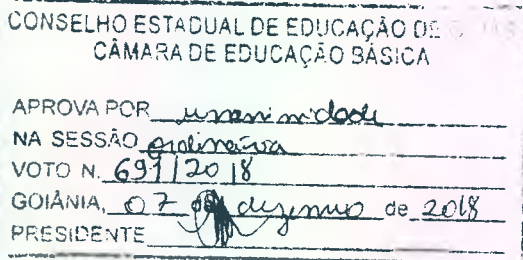 CONSELHO ESTADUAL DE EDUCAÇÃO DE
CÂMARA DE EDUCAÇÃO BÁSICA
APROVA POR unanimidade
NA SESSÃO ordinária
VOTO N. 691/2018
GOIÂNIA, 07 de dezembro de 2018
PRESIDENTE